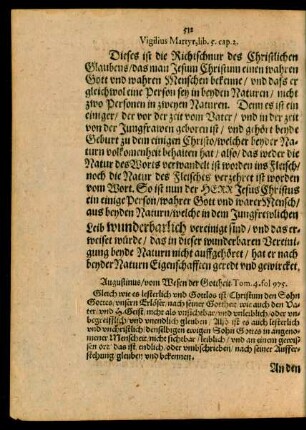 532
Vigilius Martyr, lib. 5. cap. 2.
Dieses ist die Richtschnur des Christlichen
Glaubens/ das man Jesum Christum einen wahren
Gott vnd wahren Menschen bekenne / vnd dafs er
gleichwol eine Person sey in beyden Naturen / nicht
zwo Personen in zweyen Naturen. Denn es ist ein
einiger/ der vor der zeit vom Vater/ vnd in der zeit
von der Jungfrawen geboren ist / vnd gehört beyde
Geburt zu dem einigen Christo/welcher beyder Na-
turn volkomenheit behalten hat / also/ das weder die
Natur des Worts verwandelt ist worden ins Fleisch/
noch die Natur des Fleisches verzehret ist worden
vom Wort. So ist nun der HERR Jesus Christus
ein einige Person/ wahrer Gott vnd warer Mensch/
aus beyden Naturn/welche in dem Jungfrewlichen
Leib wunderbarlich vereinigt sind / vnd das er-
weiset würde / das in dieser wunderbaren Vereini-
gung beyde Naturn nicht auffgehört / hat er nach
beyder Naturn Eigenschafften geredt vnd gewircket.
Augustinus/ vom Wesen der Gottheit Tom. 4. fol 975.
Gleich wie es lesterlich vnd Gottlos ist, Christum den Sohn
Gottes/ vnsern Erlöser/ nach seiner Gottheit/ wie auch den Va-
ter/ vnd H. Geist/ nicht als vnsichtbar/ vnd vnleiblich/ oder vn-
begreifflich vnd vnendlich gleuben/ Also ist es auch lesterlich
vnd vnchristlich/ denselbigen ewigen Sohn Gottes in angeno-
mener Menschheit nicht sichtbar/ leiblich / vnd an einem gewis-
sen ort/ das ist/ endlich/ oder vmbschrieben/ nach seiner Auffer-
stehung gleuben vnd bekennen.
An den